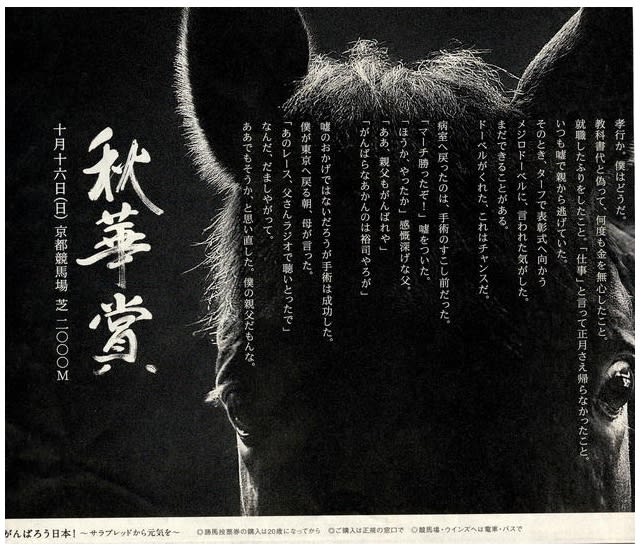 孝行か、僕はどうだ。
教科書代と偽って、何度も金を無心したこと。
就職したふりをしたこと、「仕事」と言って正月さえ帰らなかったこと。
いつも嘘で親から逃げていた。
そのとき、ターフで表彰式へ向かう
メジロドーベルに、言われた気がした。
まだできることがある。
ドーベルがくれた、これはチャンスだ。
病室へ戻ったのは、手術のすこし前だった。
「マーチ勝ったぞ!」嘘をついた。
「ほうか、やったか」感慨深げな父。
「ああ、親父もがんばれや」
「がんばらなあかんのは裕司やろが」
嘘のおかげではないだろうが手術は成功した。
僕が東京へ戻る朝、母が言った。
「あのレース、父さんラジオで聴いとったで」
なんだ、だましやがって。
ああでもそうか、と思い直した。僕の親父だもんな。
秋華賞
十月十六日(日)京都競馬場 芝 二〇〇〇M
がんばろう日本! 〜サラブレッドから元気を〜 ◎勝馬投票券の購入は20歳になってから ◎ご購入は正規の窓口で ◎競馬場・ウインズへは電車・バスで